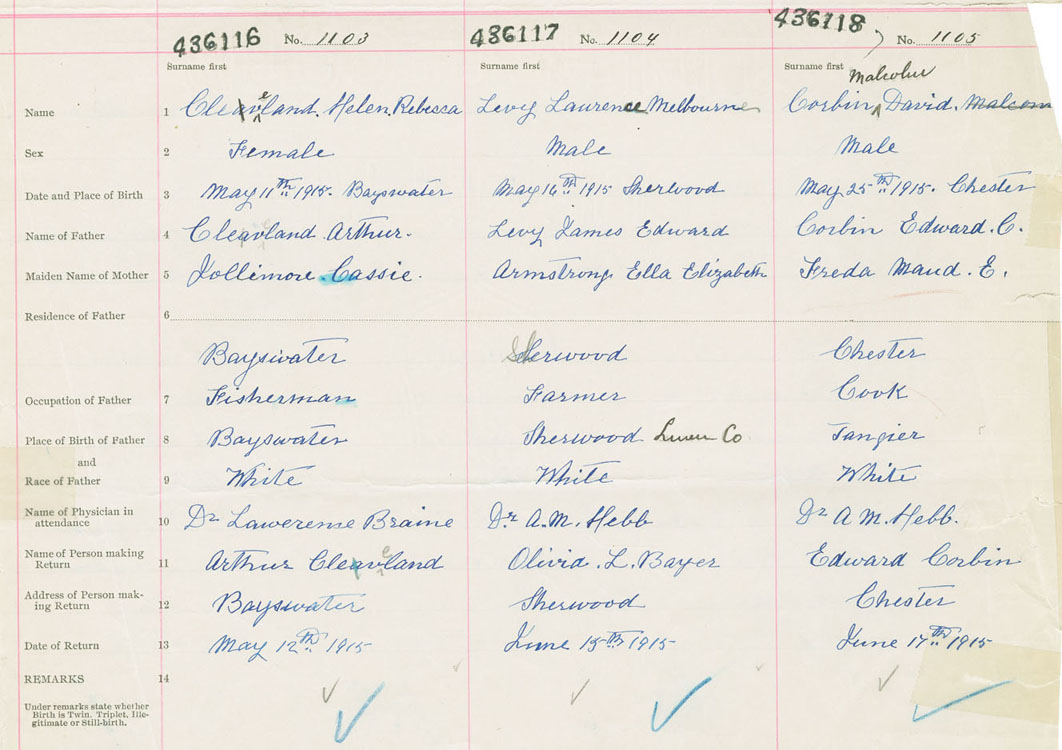 436116 No. 1103 436117 No. 1104 436118 No. 1105
Surname first Surname first Surname first
Malcolm
Name 1 Cleaveland. Helen. Rebecca Levy Laurence Melbourne Corbin David. Malcom
Sex 2 Female Male Male
Date and Place of Birth 3 May 11th 1915. Bayswater May 16th 1915 Sherwood May 25th 1915. Chester
Name of Father 4 Cleaveland Arthur. Levy James Edward Corbin Edward. C.
Maiden Name of Mother 5 Jollimore Cassie. Armstrong Ella Elizabeth Freda Maud. E.
Residence of Father 6
Bayswater Sherwood Chester
Occupation of Father 7 Fisherman Farmer Cook
Place of Birth of Father 8 Bayswater Sherwood Lunen Co Tangier
and
Race of Father 9 White White White
Name of Physician in
attendance 10 Dr Lawerense Braine Dr A.M. Hebb Dr A M. Hebb.
Name of Person making
Return 11 Arthur Cleaveland Olivia. L. Bayer Edward Corbin
Address of Person mak-
ing Return 12 Bayswater Sherwood Chester
Date of Return 13 May 12th 1915 June 15th 1915 June 17th 1915
REMARKS 14
Under remarks state whether
Birth is Twin. Triplet, Ille-
gitimate or Still-birth.